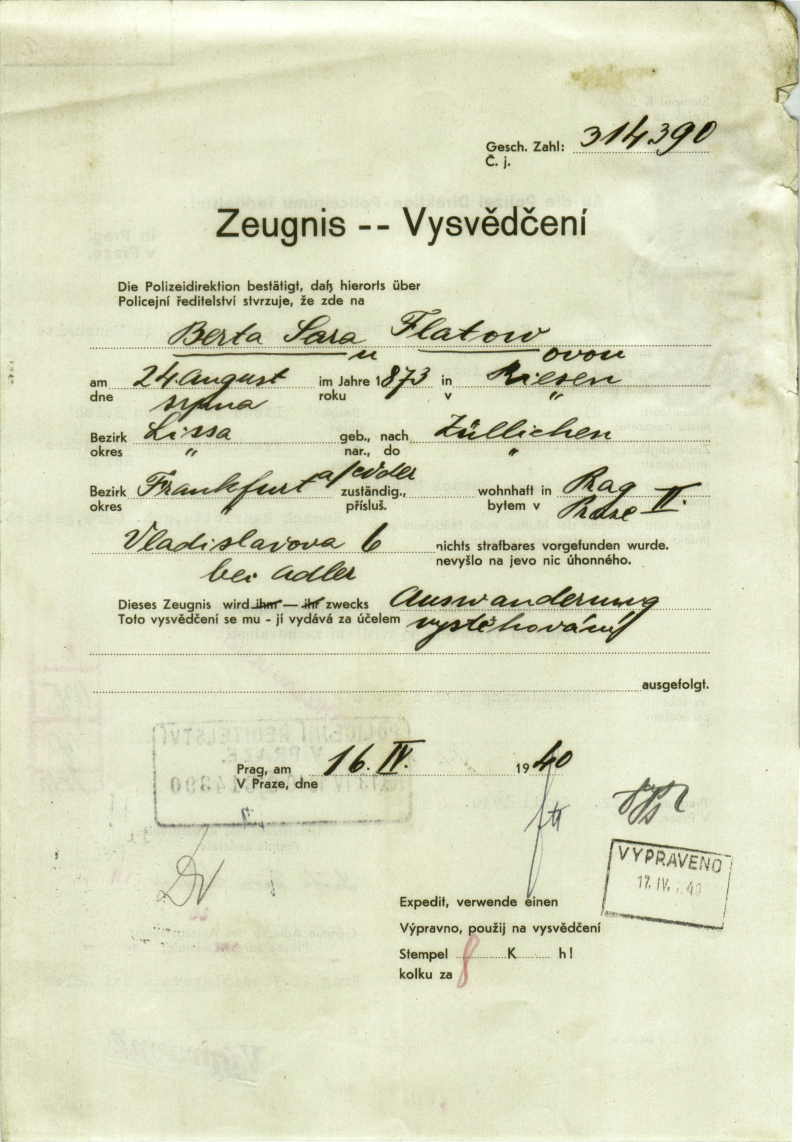 Gesch. Zahl: 314.390
Č. j.
Zeugnis -- Vysvědčení
Die Polizeidirektion bestätigt, daß hierorts über
Policejní ředitelství stvrzuje, že zde na
Berta Sara Flatow
u ovou
am 24 August im Jahre 1873 in Riesen
dne srpna roku v "
Bezirk Lissa geb., nach Züllichen
okres " nar., do "
Bezirk Frankfurt a/Oder zuständig., wohnhaft in Prag II.
okres " přísluš. bytem v Praze
Vladislavova 6 nichts strafbares vorgefunden wurde.
bei Adler nevyšlo na jevo nic úhonného.
Dieses Zeugnis wird ihm — ihr zwecks Auswanderung
Toto vysvědčení se mu - jí vydává za účelem vystěhování
ausgefolgt.
POLICEJNÍ ŘEDITELSTVÍ
V PRAZE
Prag, am 16. IV. 1940
V Praze, dne
VYPRAVENO
17. IV. 40
Expedit, verwende einen
Výpravno, použij na vysvědčení
Stempel 8 K h!
kolku za